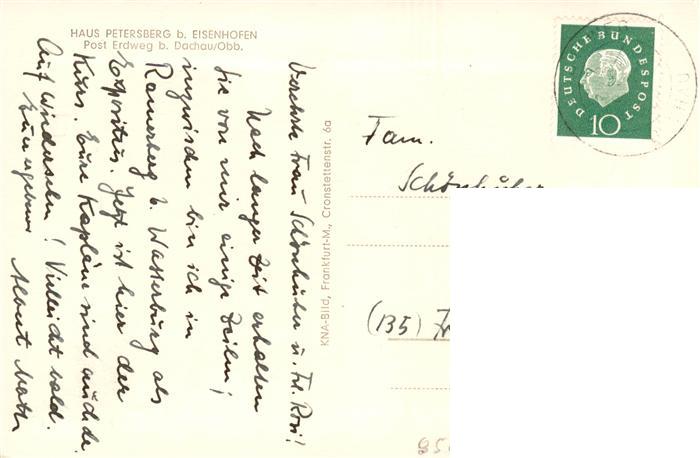 HAUS PETERSBERG b. EISENHOFEN
Post Erdweg b. Dachau/Obb.
Verehrte Frau Schönhuber u. Frl. Rosi!
Nach langer Zeit erhalten
Sie von mir einige Zeilen;
inzwischen bin ich in
Ramerberg b. Wasserburg als
Expositus. Jetzt ist hier der
Kurs. Eure Kapläne sind auch da.
Auf Wiedersehen! Vielleicht bald.
Euer ergebener Albert
KNA-Bild, Frankfurt-M., Cronstettenstr. 6a
DEUTSCHE BUNDESPOST
10
Fam.
Schönhuber
(13b)